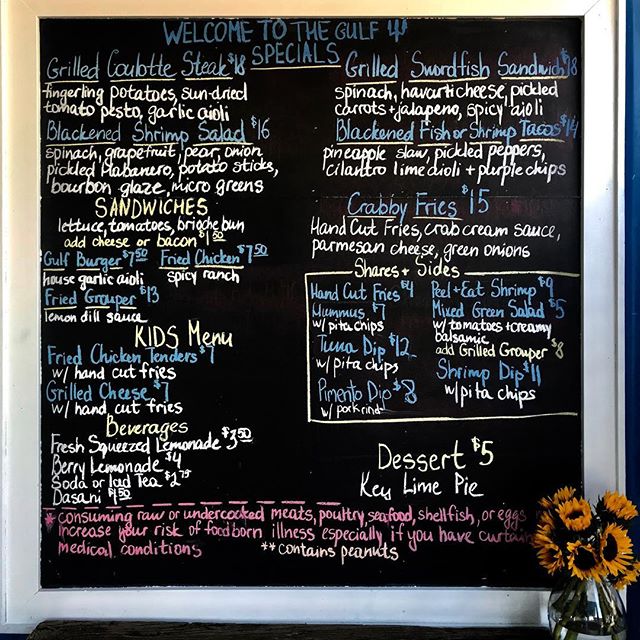 WELCOME TO THE GULF
SPECIALS
Grilled Coulotte Steak $18
fingerling potatoes, sun-dried
tomato pesto, garlic aioli
Blackened Shrimp Salad $16
spinach, grapefruit, pear, onion
pickled Habanero, potato sticks,
bourbon glaze, micro greens
SANDWICHES
lettuce, tomatoes, brioche bun
add cheese or bacon $1.50
Gulf Burger $7.50 Fried Chicken $7.50
house garlic aioli spicy ranch
Fried Grouper $13
lemon dill sauce
KIDS Menu
Fried Chicken Tenders $7
w/ hand cut fries
Grilled Cheese $7
w/ hand cut fries
Beverages
Fresh Squeezed Lemonade $3.50
Berry Lemonade $4
Soda or Iced Tea $2.75
Dasani $1.50
Grilled Swordfish Sandwich $18
spinach, havarti cheese, pickled
carrots + jalapeno, spicy aioli
Blackened Fish or Shrimp Tacos $14
pineapple slaw, pickled peppers,
cilantro lime aioli + purple chips
Crabby Fries $15
Hand Cut Fries, crab cream sauce,
parmesan cheese, green onions
Shares + Sides
Hand Cut Fries $4
Hummus $7
w/ pita chips
Tuna Dip $12
w/ pita chips
Pimento Dip $8
w/ pork rind
Peel + Eat Shrimp $9
Mixed Green Salad $5
w/ tomatoes + creamy
balsamic
add Grilled Grouper $8
Shrimp Dip $11
w/ pita chips
Dessert $5
Key Lime Pie
* consuming raw or undercooked meats, poultry, seafood, shellfish, or eggs
increase your risk of foodborn illness especially if you have curtain
medical conditions **contains peanuts